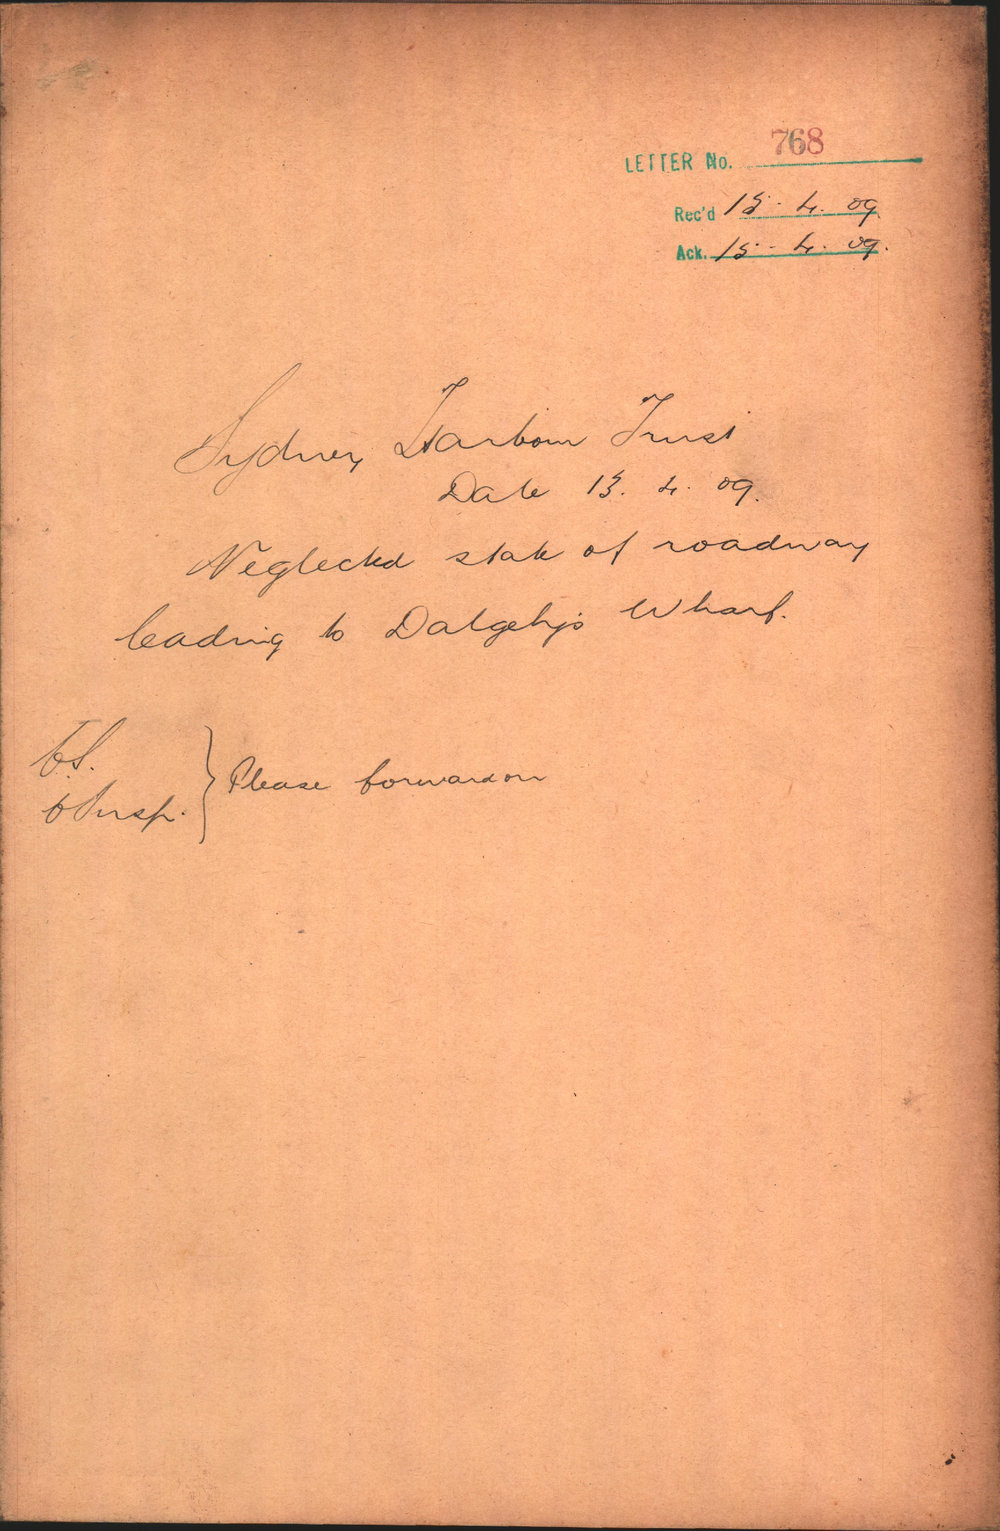 LETTER No. 768
Rec'd 15. 4. 09
Ack. 15. 4. 09.
Sydney Harbour Trust
Date 13. 4. 09.
Neglected state of roadway
leading to Dalgety's Wharf.
Please forward on